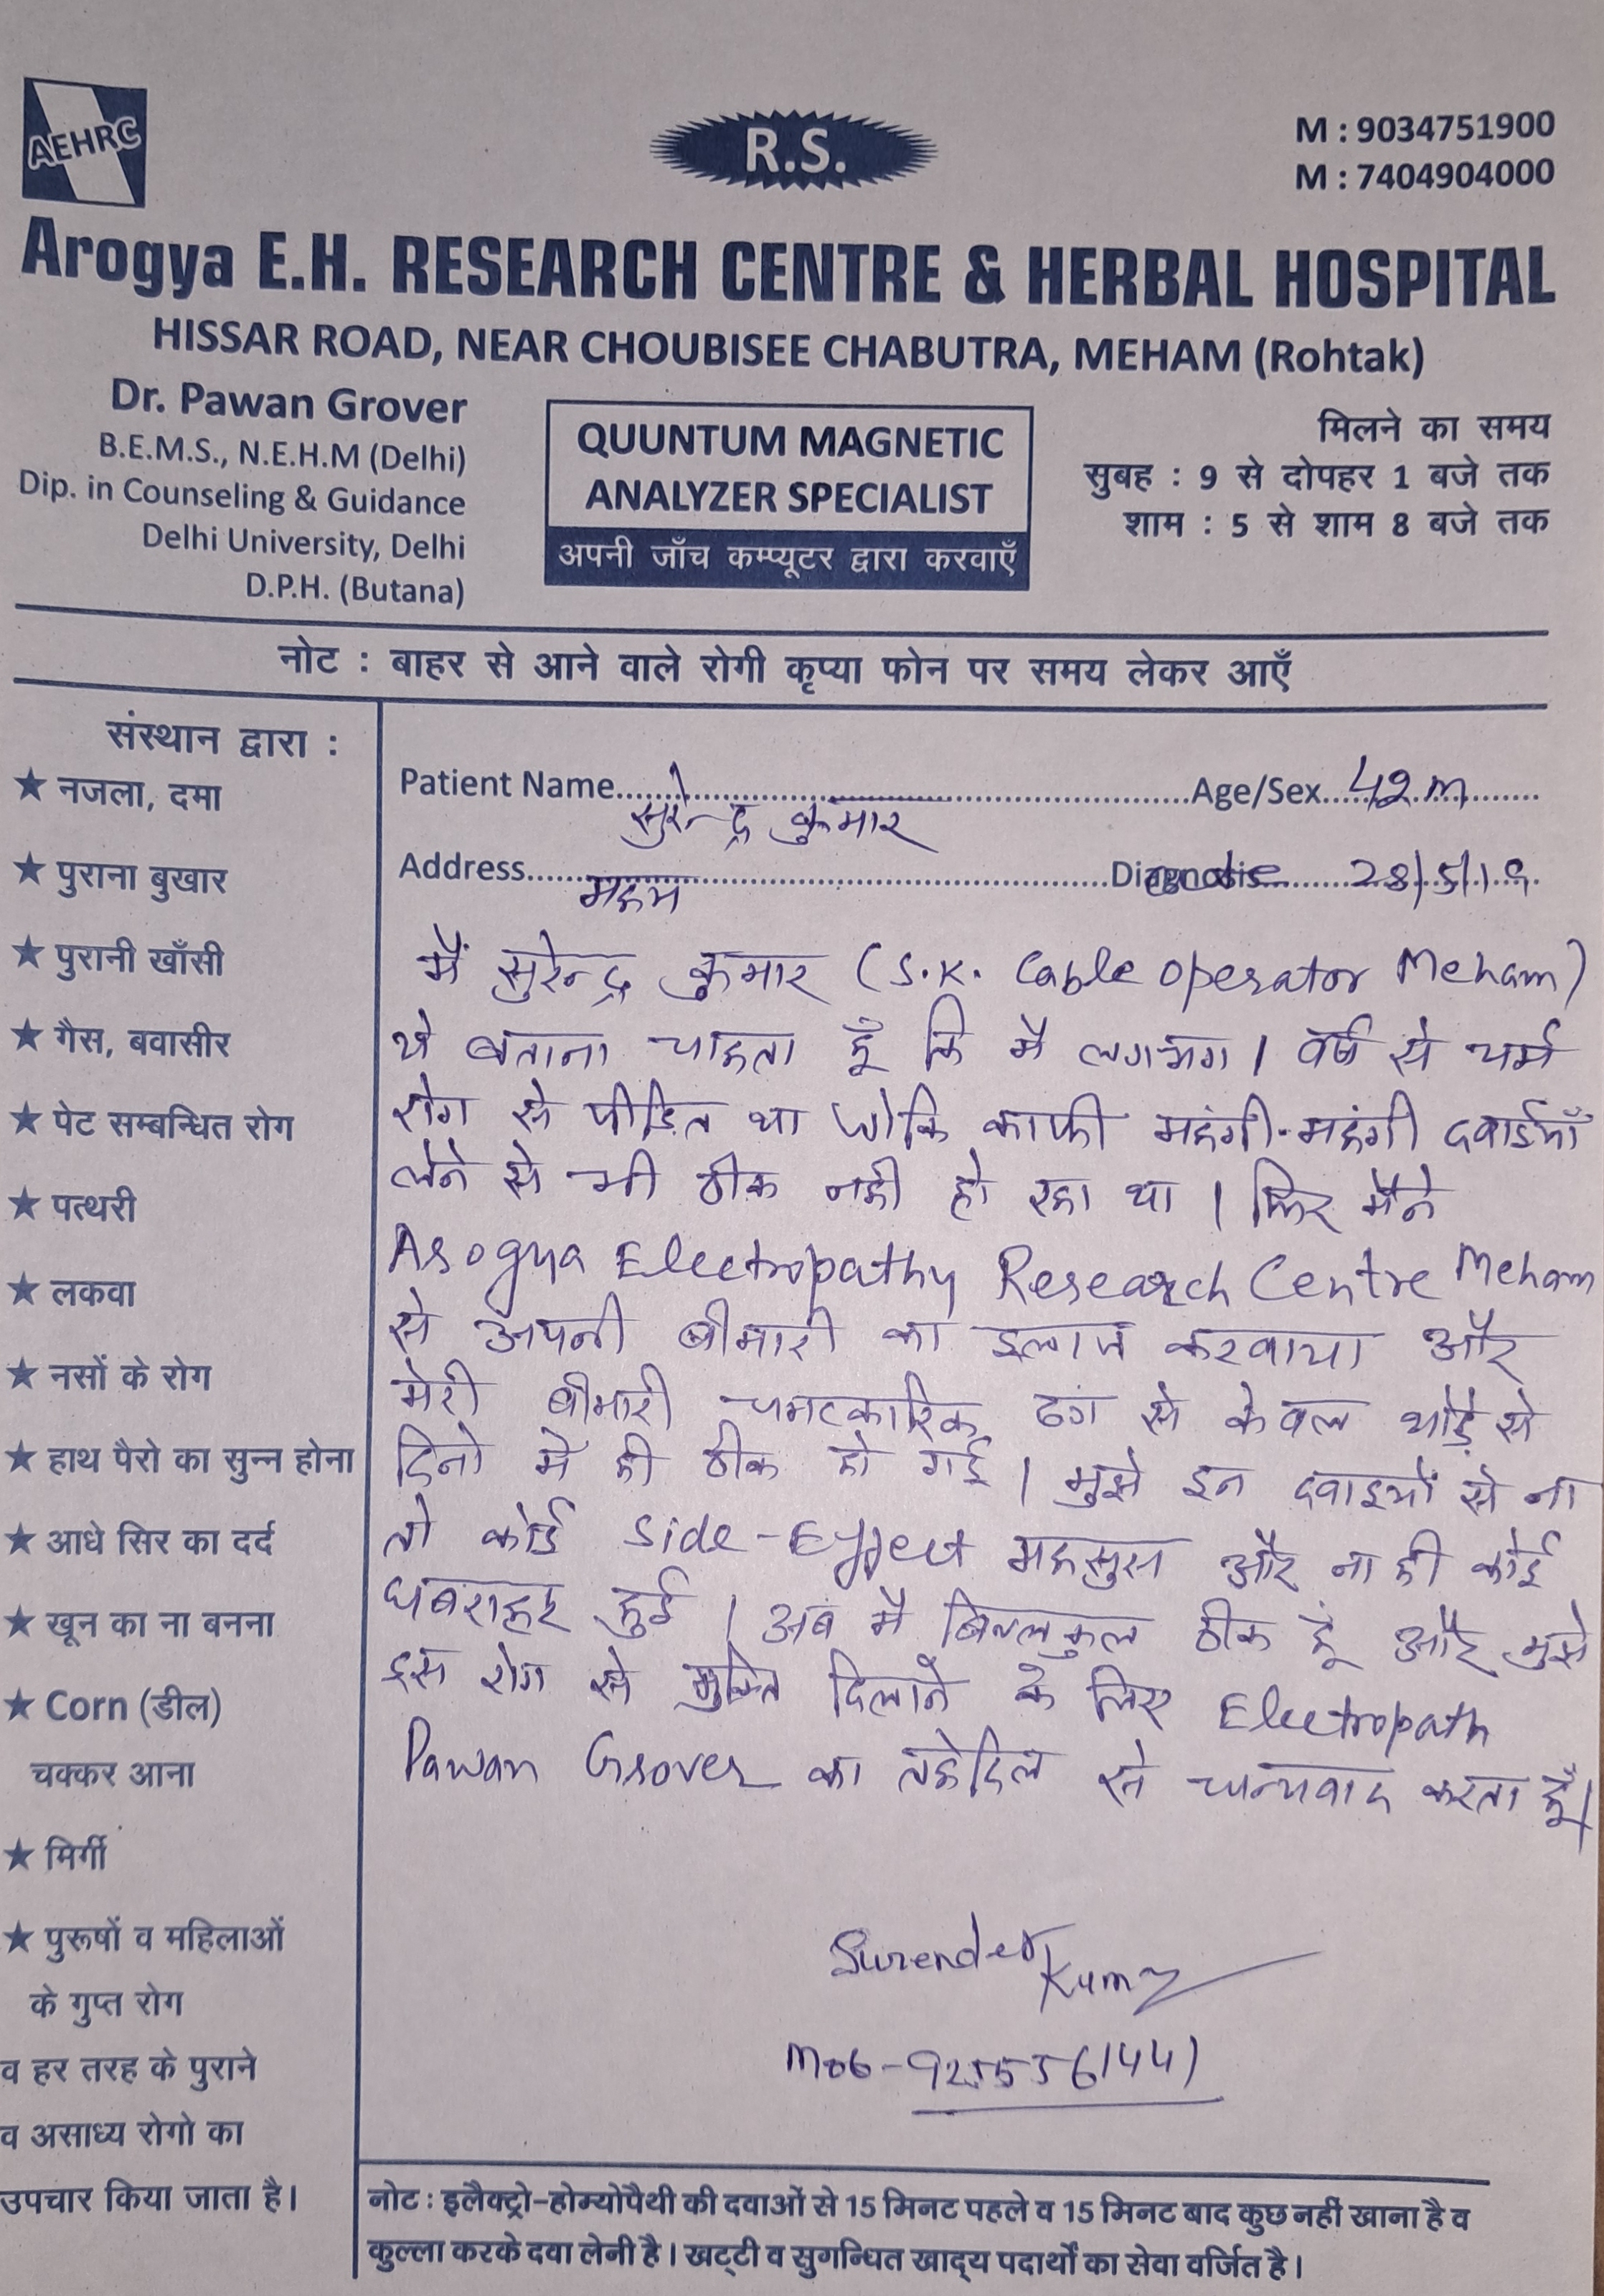 AEHRC
R.S.
M : 9034751900
M : 7404904000
Arogya E.H. RESEARCH CENTRE & HERBAL HOSPITAL
HISSAR ROAD, NEAR CHOUBISEE CHABUTRA, MEHAM (Rohtak)
Dr. Pawan Grover
B.E.M.S., N.E.H.M (Delhi)
Dip. in Counseling & Guidance
Delhi University, Delhi
D.P.H. (Butana)
QUUNTUM MAGNETIC
ANALYZER SPECIALIST
अपनी जाँच कम्प्यूटर द्वारा करवाएँ
मिलने का समय
सुबह : 9 से दोपहर 1 बजे तक
शाम : 5 से शाम 8 बजे तक
नोट : बाहर से आने वाले रोगी कृप्या फोन पर समय लेकर आएँ
संस्थान द्वारा :
★ नजला, दमा
★ पुराना बुखार
★ पुरानी खाँसी
★ गैस, बवासीर
★ पेट सम्बन्धित रोग
★ पत्थरी
★ लकवा
★ नसों के रोग
★ हाथ पैरो का सुन्न होना
★ आधे सिर का दर्द
★ खून का ना बनना
★ Corn (डील)
चक्कर आना
★ मिर्गी
★ पुरूषों व महिलाओं
के गुप्त रोग
व हर तरह के पुराने
व असाध्य रोगो का
उपचार किया जाता है।
Patient Name सुरेन्द्र कुमार Age/Sex 42 m
Address महम Diagnosis 28/5/19
मैं सुरेन्द्र कुमार (S.K. Cable Operator Meham)
ये बताना चाहता हूँ कि मै लगभग 1 वर्ष से चर्म
रोग से पीडित था जोकि काफी महंगी-महंगी दवाईयाँ
लेने से भी ठीक नही हो रहा था । फिर मैंने
Arogya Electropathy Research Centre Meham
से अपनी बीमारी का इलाज करवाया और
मेरी बीमारी चमत्कारिक ढंग से केवल थोड़े से
दिनो मे ही ठीक हो गई । मुझे इन दवाइयों से ना
तो कोई Side-Effect महसुस और ना ही कोई
घबराहट हुई । अब मै बिल्लकुल ठीक हूँ और मुझे
इस रोग से मुक्ति दिलाने के लिए Electropath
Pawan Grover का तहेदिल से धन्यवाद करता हूँ।
Surender Kumar
Mob-9255561441
नोट : इलैक्ट्रो-होम्योपैथी की दवाओं से 15 मिनट पहले व 15 मिनट बाद कुछ नहीं खाना है व
कुल्ला करके दवा लेनी है। खट्टी व सुगन्धित खाद्य पदार्थों का सेवा वर्जित है।